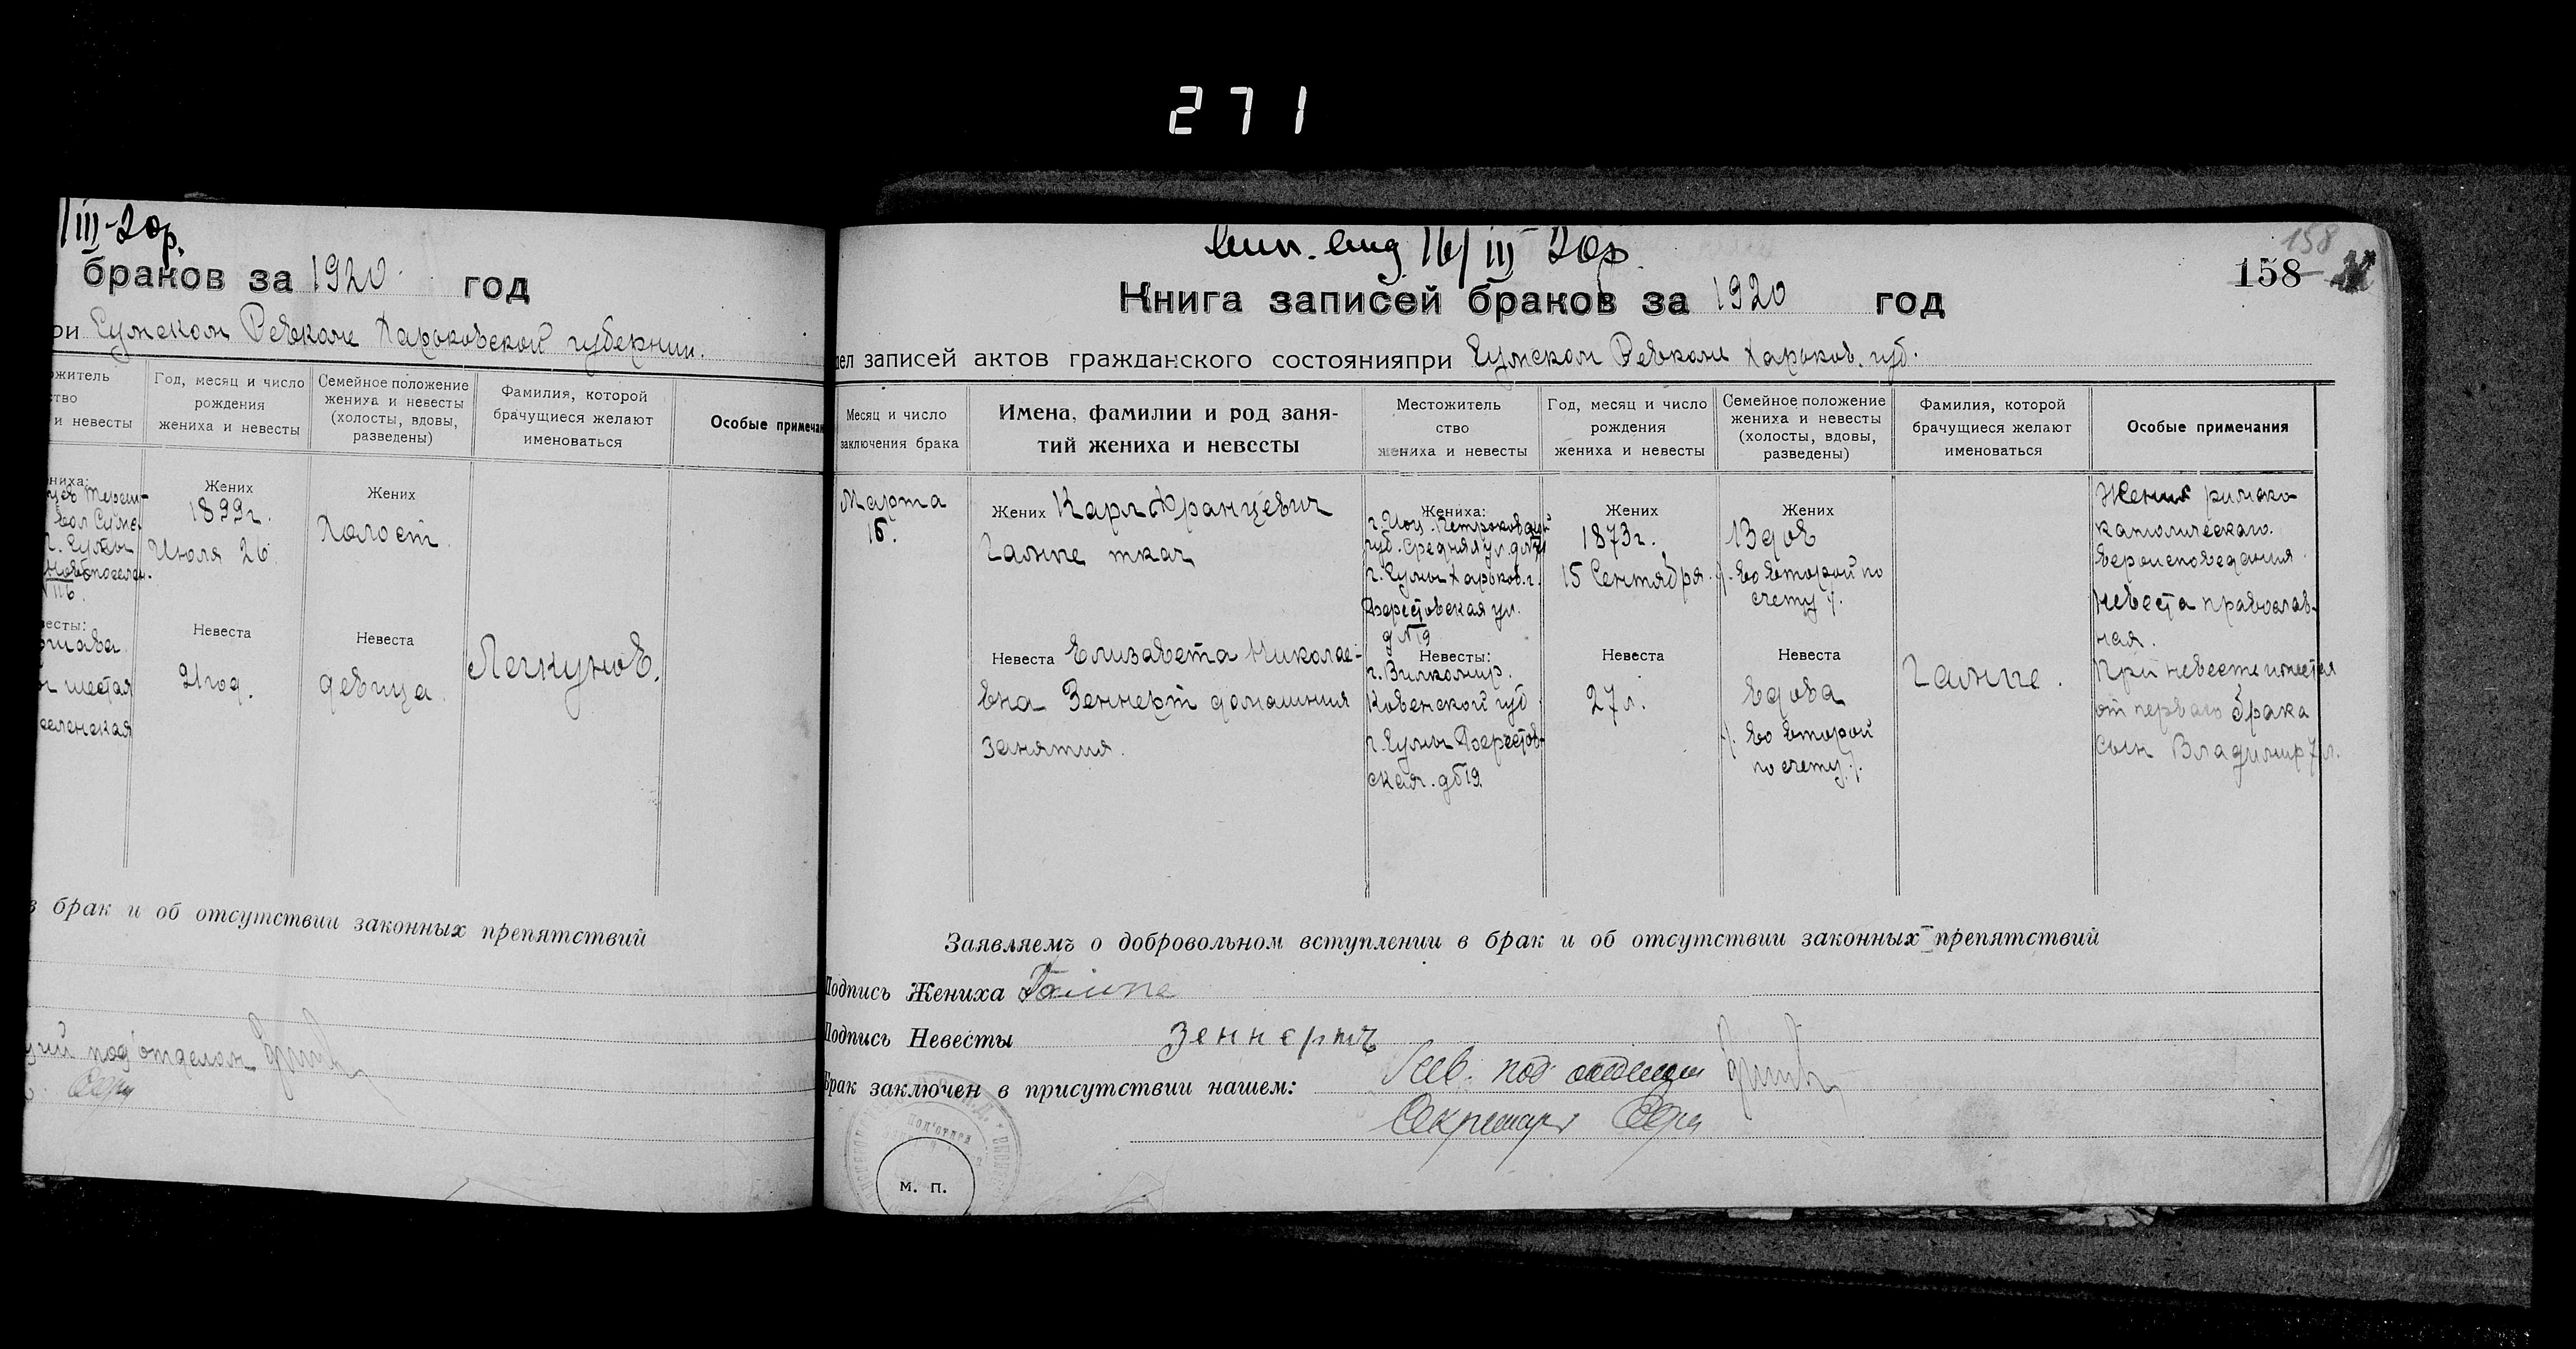 271
III-20р.
браков за 1920 год
ри Сумском Ревкоме Харьковской губернии.
житель
ство
и невесты
Год, месяц и число
рождения
жениха и невесты
Семейное положение
жениха и невесты
(холосты, вдовы,
разведены)
Фамилия, которой
брачущиеся желают
именоваться
Особые примечан
ниха:
г. Сумы
Жених
1899 г.
Июля 26
Жених
Холост.
весты:
шестая
селенская
Невеста
21 год.
Невеста
девица.
Легкунов.
в брак и об отсутствии законных препятствий
под'отделом
158
16/III 20р.
158
Книга записей браков за 1920 год
дел записей актов гражданского состоянияпри Сумском Ревкоме Харьков. губ.
Месяц и число
заключения брака
Имена, фамилии и род заня-
тий жениха и невесты
Местожитель
ство
жениха и невесты
Год, месяц и число
рождения
жениха и невесты
Семейное положение
жениха и невесты
(холосты, вдовы,
разведены)
Фамилия, которой
брачущиеся желают
именоваться
Особые примечания
Марта
16.
Жених Карл Францевич
Гампе ткач
Жениха:
Петроковской
губ. Средняя ул. д №71
г. Сумы Харьков. г.
ул.
д №19
Жених
1873 г.
15 Сентября.
Жених
Вдов
/. во второй по
счету /.
Жених римско
католического
вероисповедания.
Невеста православ-
ная.
При невесте имеется
от первого брака
сын Владимир 7 л.
Невеста Елизавета Николае-
вна Зеннерт домашния
занятия.
Невесты:
г. Вилкомир.
Ковенской губ
г. Сумы
ская. д №19
Невеста
27 л.
Невеста
вдова
/. во второй
по счету /.
Гампе.
Заявляемъ о добровольном вступлении в брак и об отсутствии законных препятствий
Подпись Жениха Гампе
Подпись Невесты Зеннертъ
Брак заключен в присутствии нашем: Зав. под'отделом
Секретарь
под'отдел
м. п.